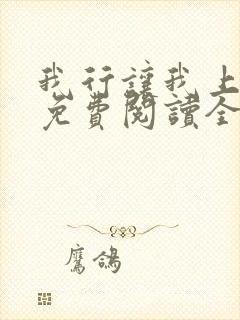 我行讓我上
免費閱讀全
鷹鴿